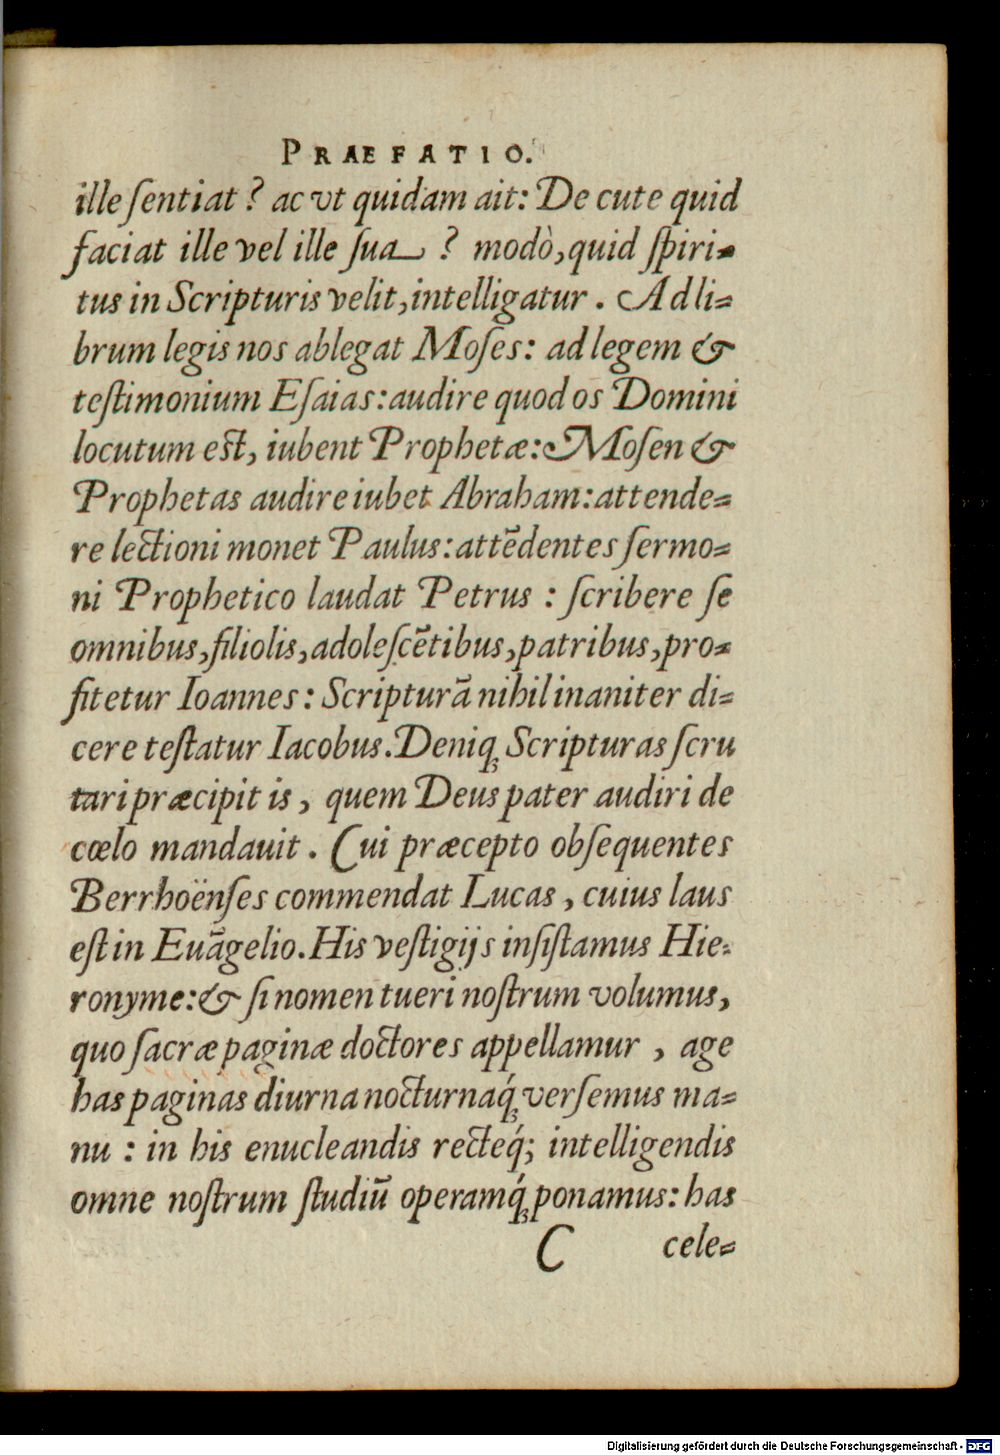 PRAEFATIO.
ille ſentiat? ac vt quidam ait: De cute quid
faciat ille vel ille ſua? modò, quid ſpiri-
tus in Scripturis velit, intelligatur. Ad li-
brum legis nos ablegat Moſes: ad legem &
teſtimonium Eſaias: audire quod os Domini
locutum eſt, iubent Prophetæ: Moſen &
Prophetas audire iubet Abraham: attende-
re lectioni monet Paulus: attẽdentes ſermo-
ni Prophetico laudat Petrus: ſcribere ſe
omnibus, filiolis, adoleſcẽtibus, patribus, pro-
fitetur Ioannes: Scripturã nihil inaniter di-
cere teſtatur Iacobus. Deniq; Scripturas ſcru
tari præcipit is, quem Deus pater audiri de
cœlo mandauit. Cui præcepto obſequentes
Berrhoënſes commendat Lucas, cuius laus
eſt in Euãgelio. His veſtigijs inſiſtamus Hie-
ronyme: & ſi nomen tueri noſtrum volumus,
quo ſacræ paginæ doctores appellamur, age
has paginas diurna nocturnaq́; verſemus ma-
nu: in his enucleandis recteq́; intelligendis
omne noſtrum ſtudiũ operamq́; ponamus: has
C cele-
Digitalisierung gefördert durch die Deutsche Forschungsgemeinschaft - DFG